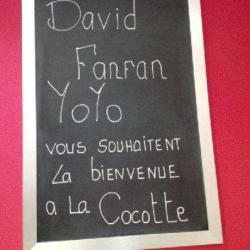 David
Fanfan
YoYo
VOUS SOUHAITENT
La BIENVENUE
a La Cocotte